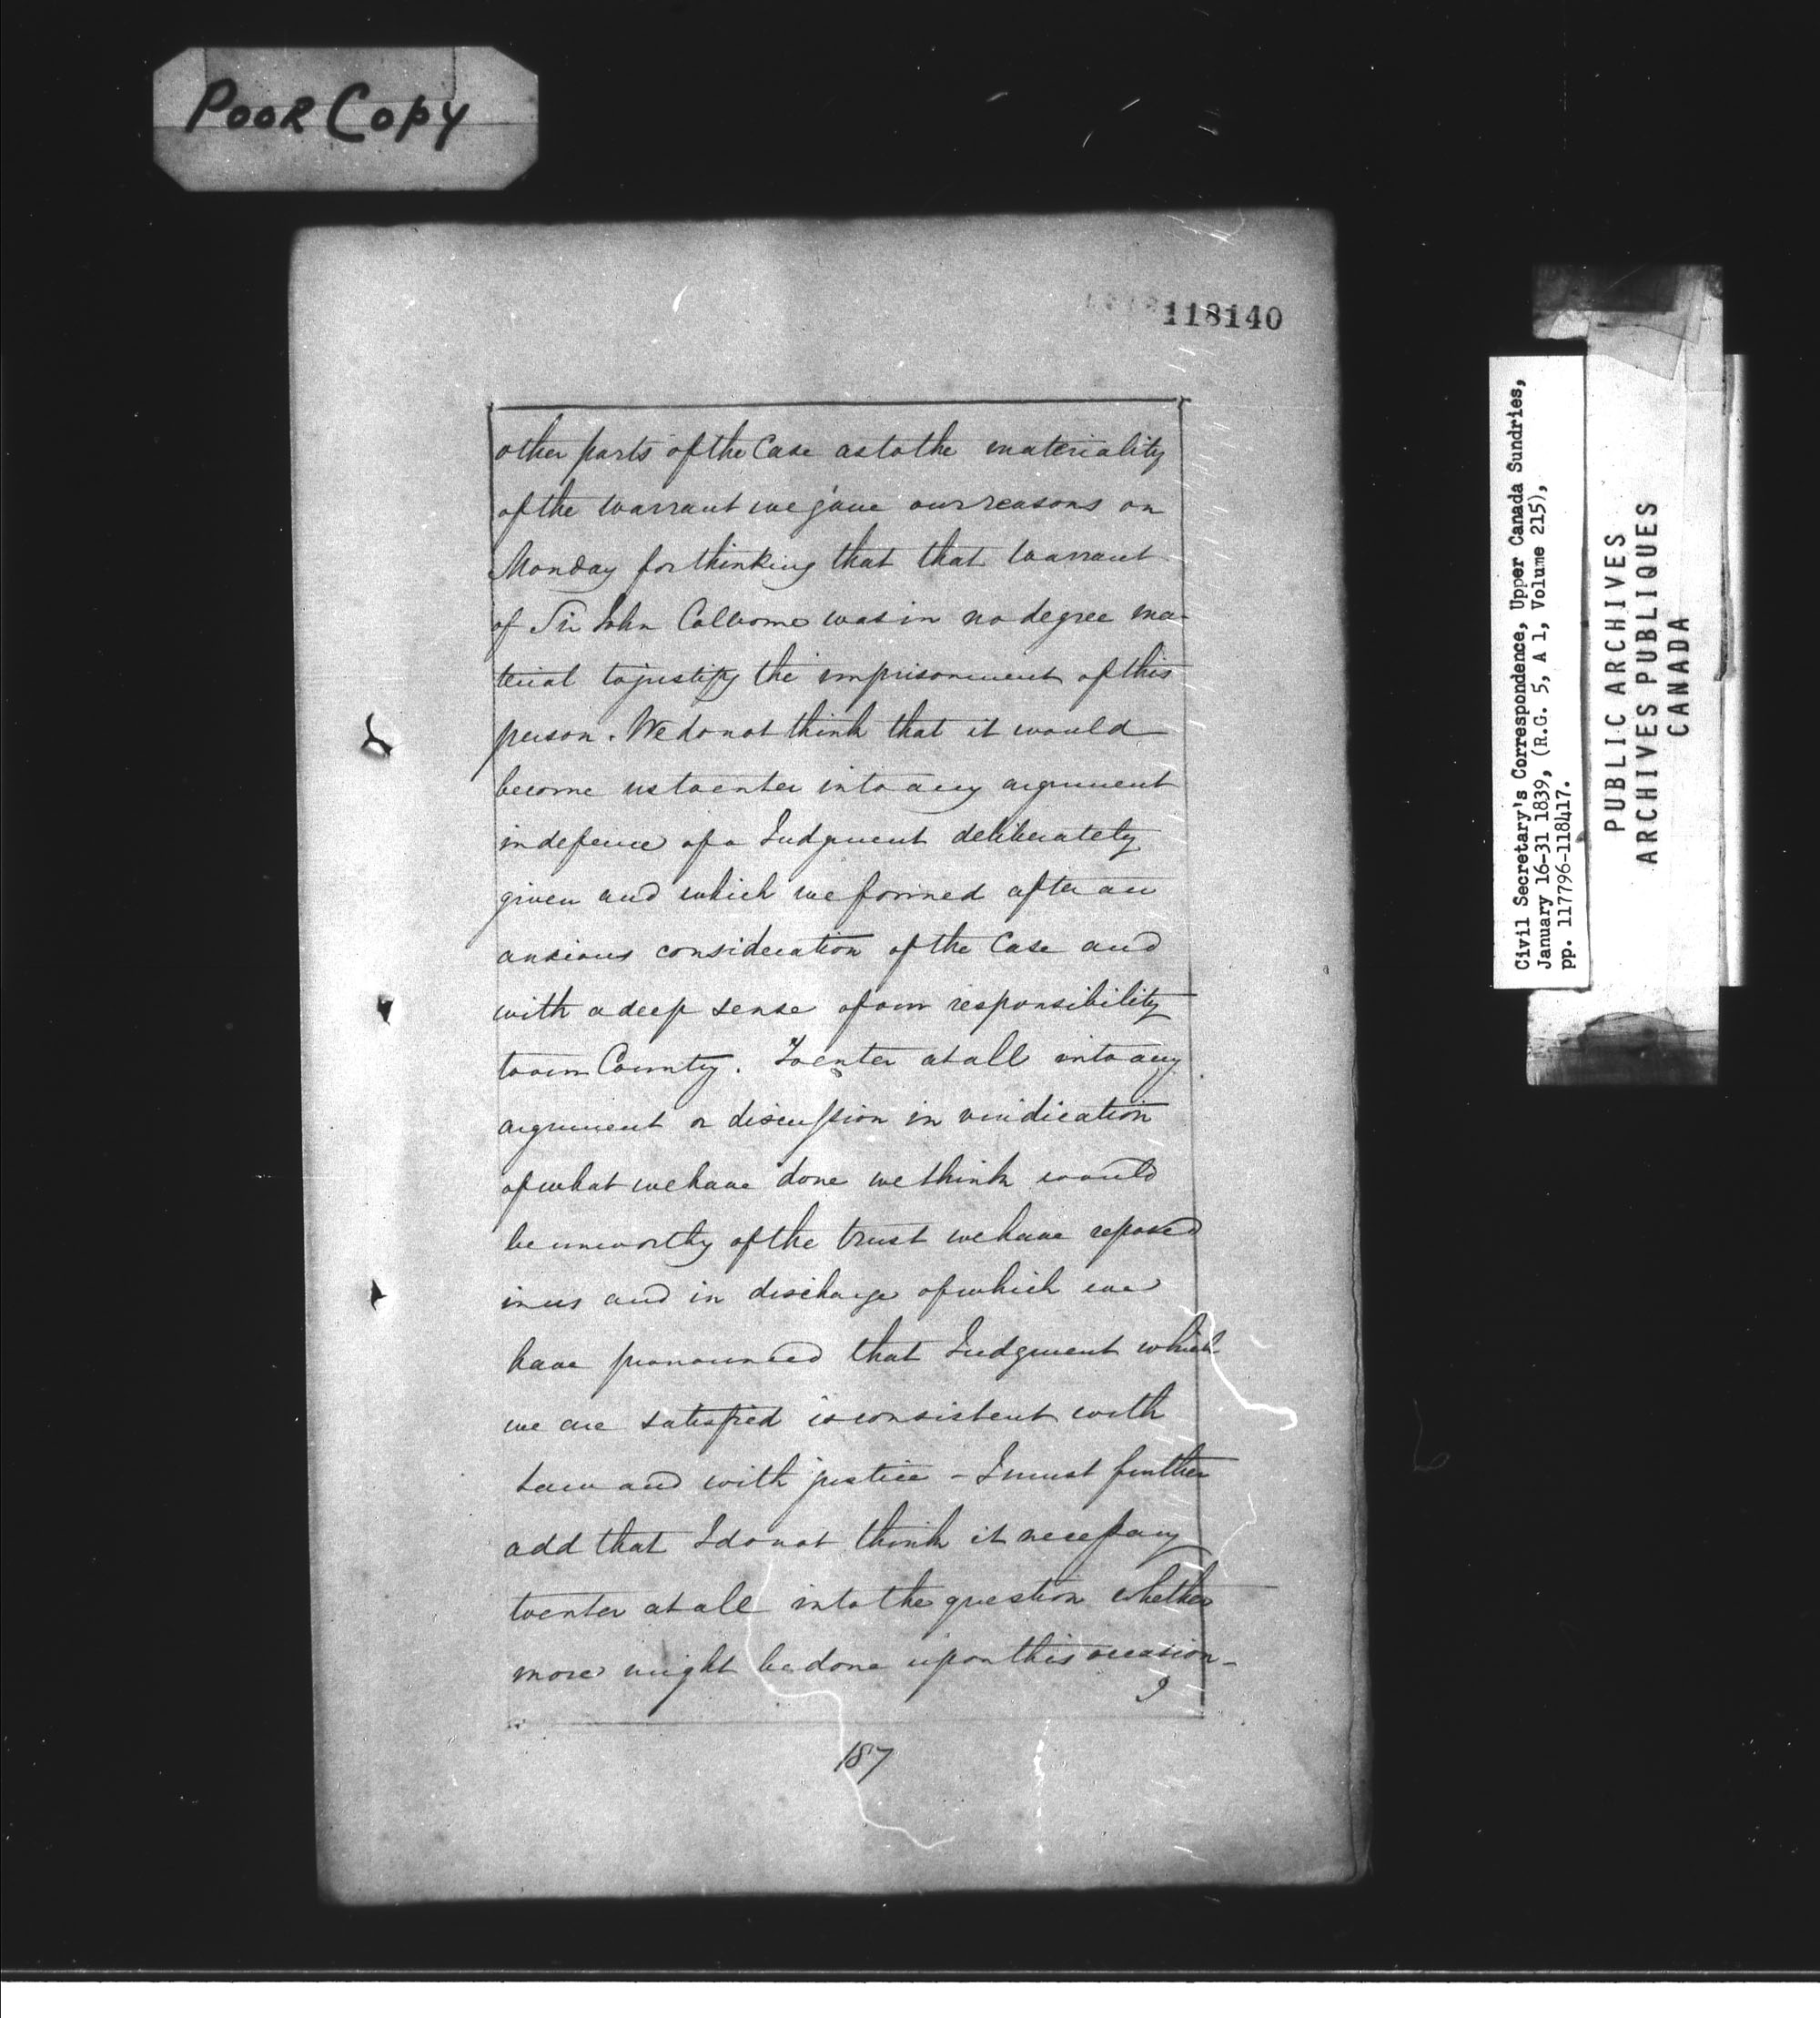 Poor Copy
118140
other parts of the Case as to the materiality
of the warrant we gave our reasons on
Monday for thinking that that warrant
of Sir John Colborne was in no degree ma-
terial to justify the imprisonment of this
person. We do not think that it would
become us to enter into any argument
in defence of a Judgment deliberately
given and which we formed after an
anxious consideration of the Case and
with a deep sense of our responsibility
to our Country. To enter at all into any
argument or discussion in vindication
of what we have done we think would
be unworthy of the trust we have reposed
in us and in discharge of which we
have pronounced that Judgment which
we are satisfied is consistent with
Law and with justice - I must further
add that I do not think it necessary
to enter at all into the question whether
more might be done upon this occasion -
I
187
Civil Secretary's Correspondence, Upper Canada Sundries,
January 16-31 1839, (R.G. 5, A 1, Volume 215),
pp. 117796-118417.
PUBLIC ARCHIVES
ARCHIVES PUBLIQUES
CANADA